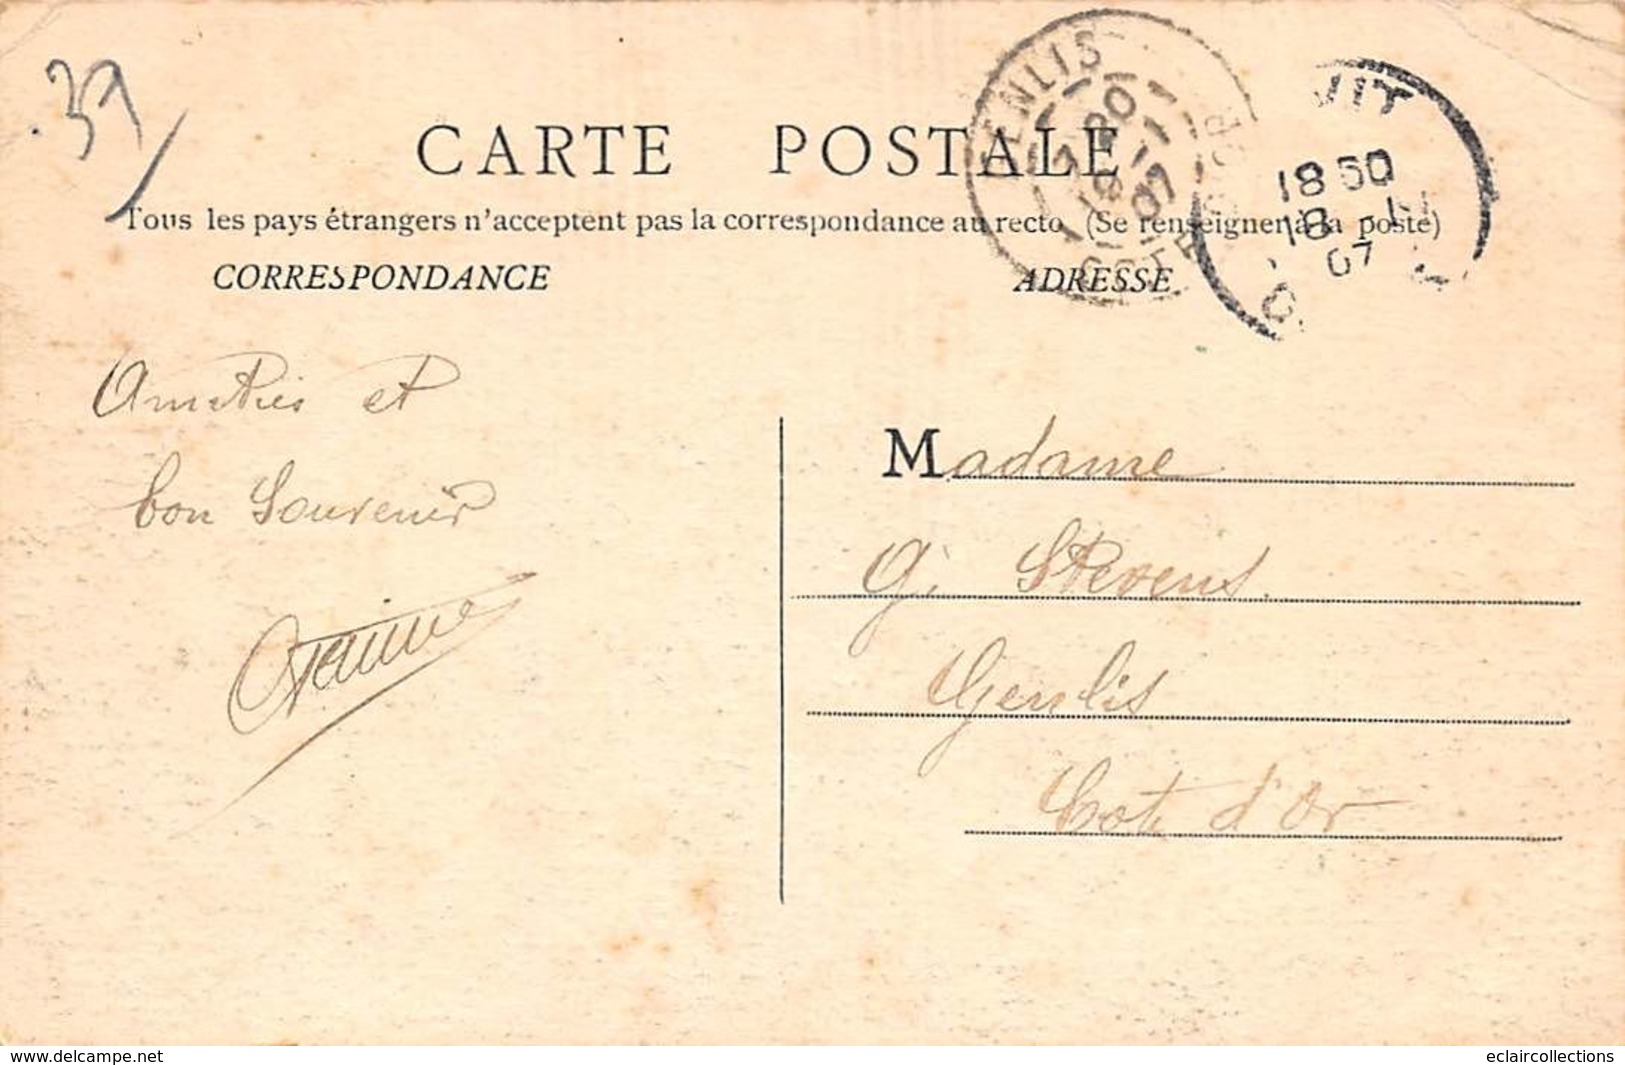 39
CARTE POSTALE
Tous les pays étrangers n'acceptent pas la correspondance au recto (Se renseigner à la poste)
CORRESPONDANCE
ADRESSE
GENLIS
7 30
19 -1
07
COTE D'OR
18 50
18 -1
07
Amitiés et
bon Souvenir
Madame
G. Stevens.
Genlis
Cote d'Or
www.delcampe.net
eclaircollections